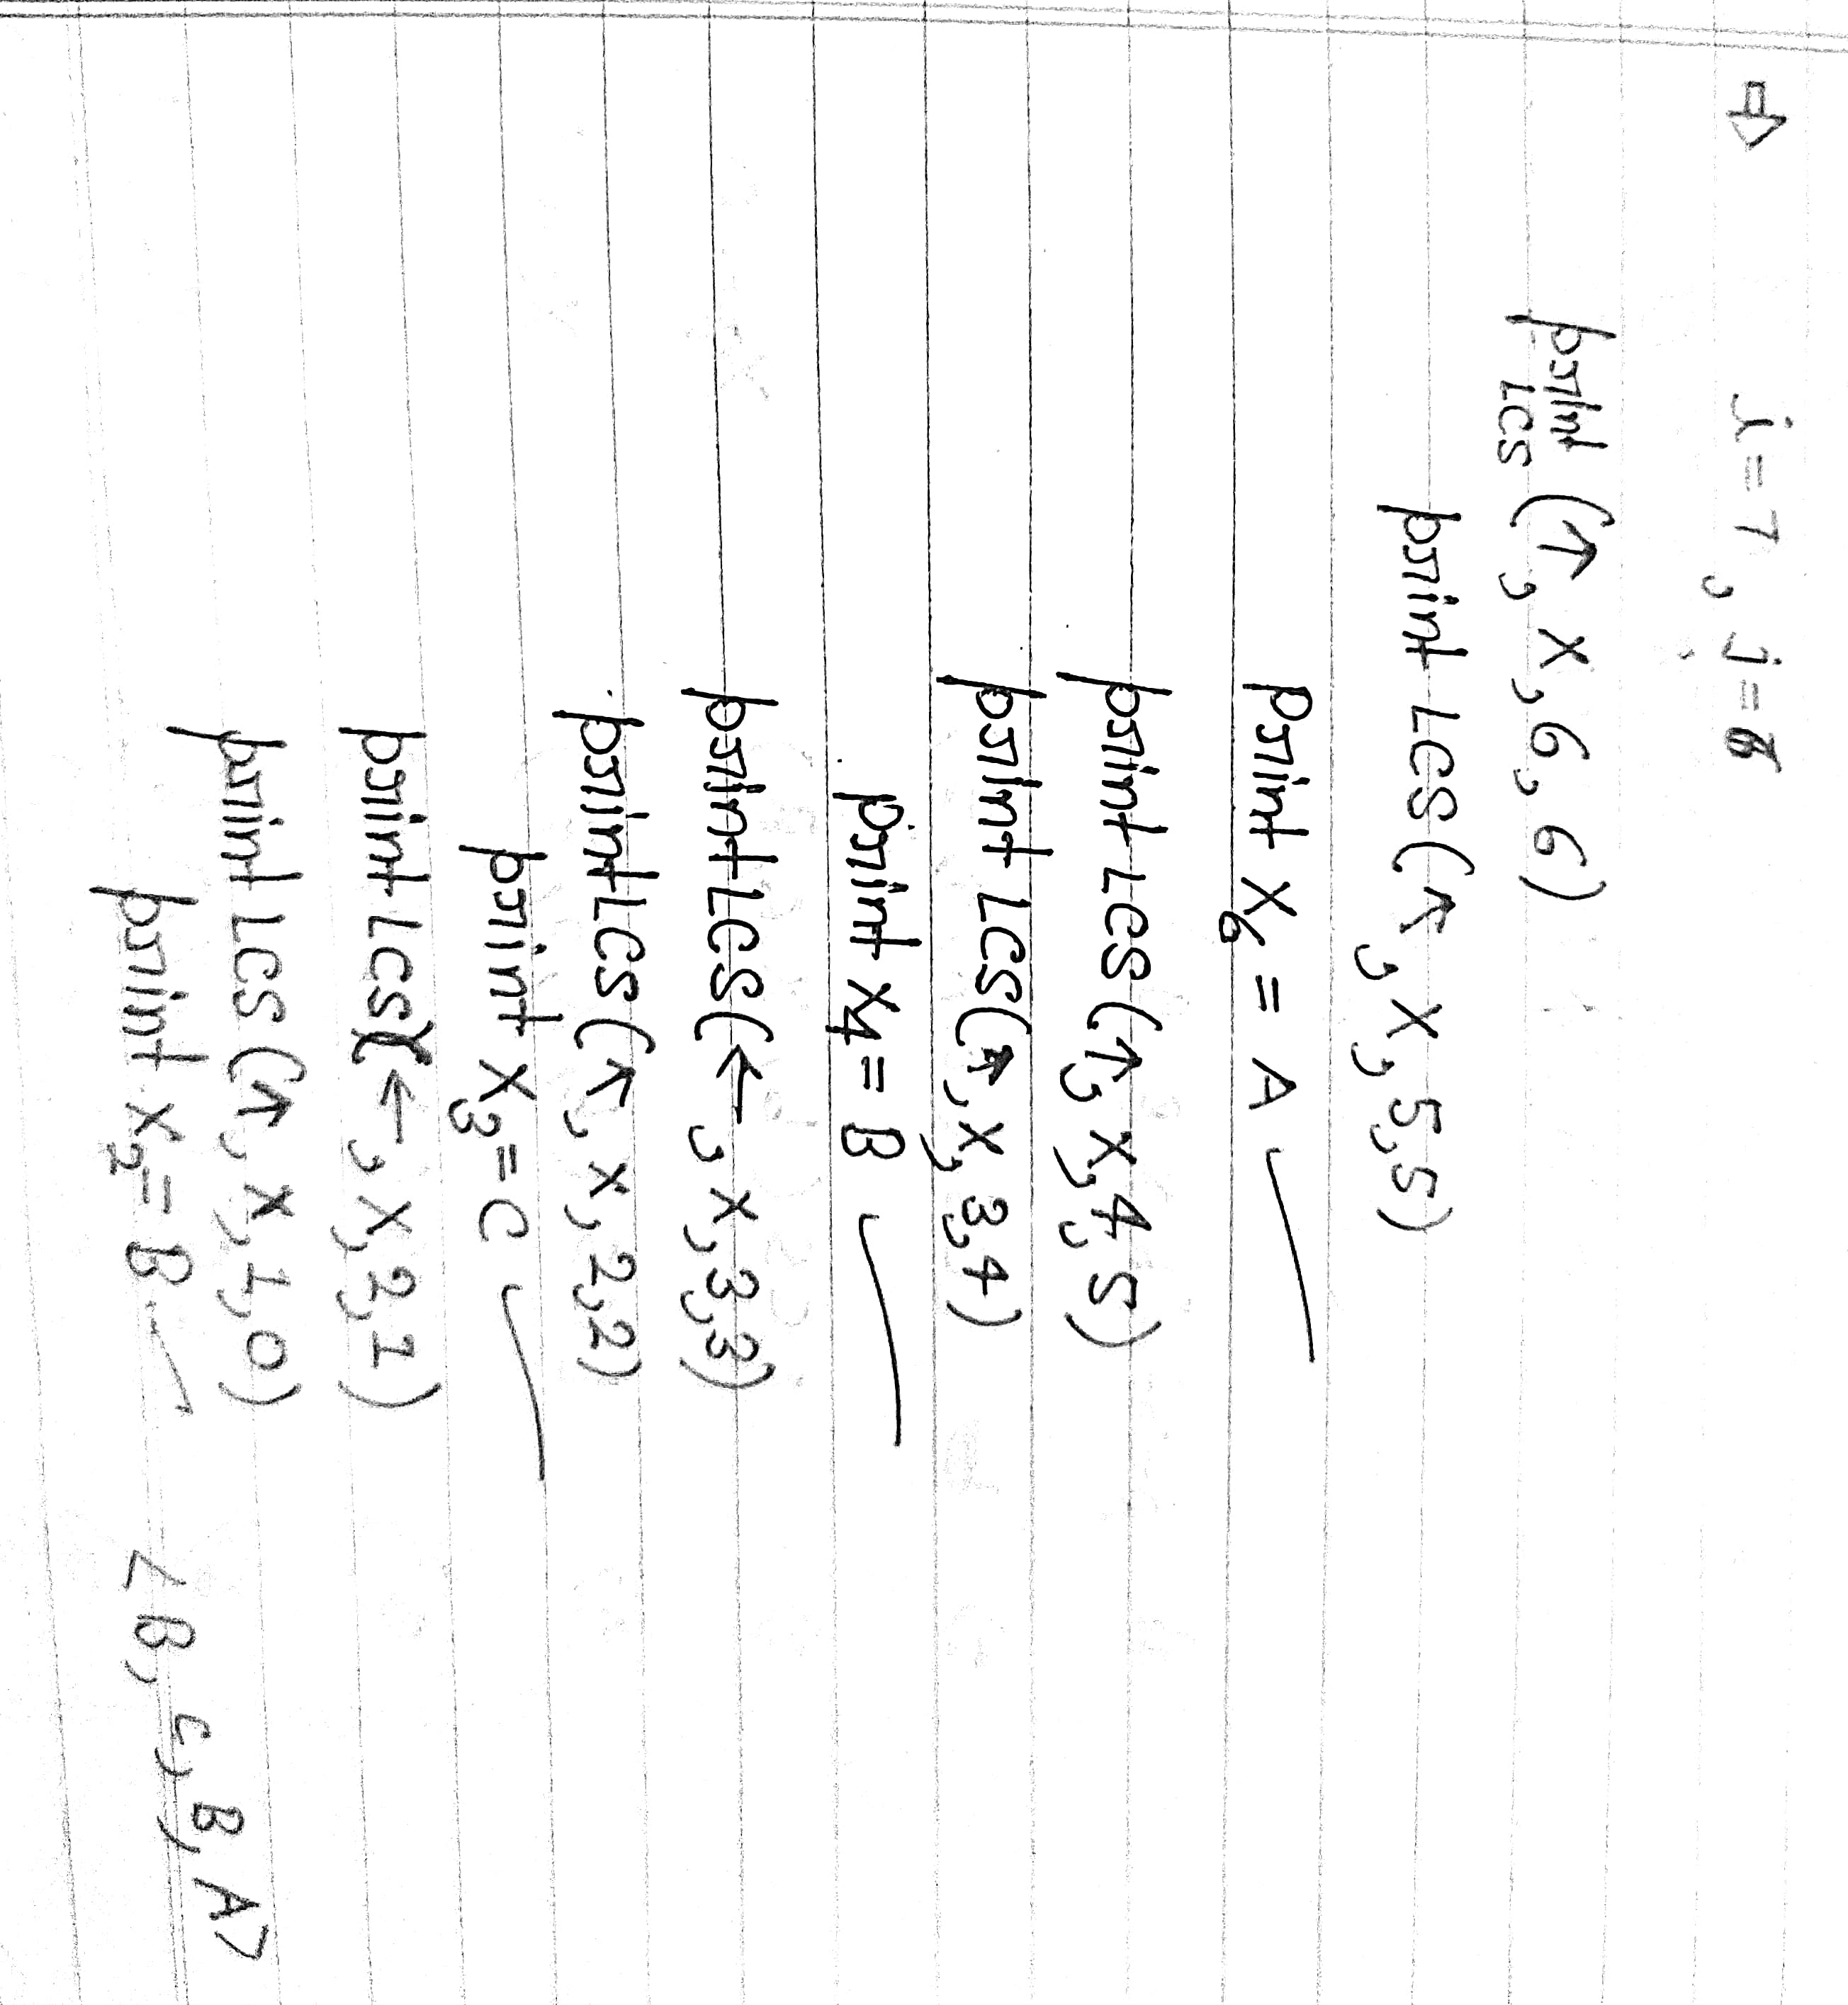 ⇨ i = 7, j = 6
print LCS (↑, x, 6, 6)
print LCS (↖, x, 5, 5)
print x6 = A ✓
print LCS (↑, x, 4, 5)
print LCS (↖, x, 3, 4)
print x4 = B ✓
print LCS (←, x, 3, 3)
print LCS (↖, x, 2, 2)
print x3 = C ✓
print LCS (←, x, 2, 1)
print LCS (↖, x, 1, 0)
print x2 = B ✓ <B, C, B, A>